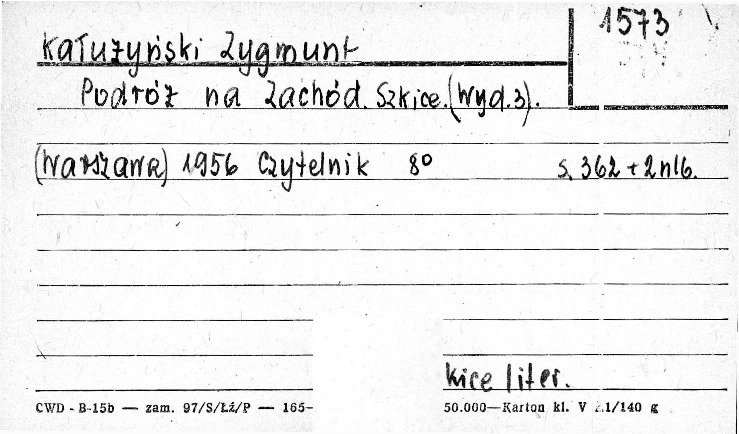 1573
Kałużyński Zygmunt
Podróż na Zachód. Szkice. (Wyd. 3).
(Warszawa) 1956 Czytelnik 8° s. 362 + 2 nlb.
kice liter.
CWD - B-15b — zam. 97/S/Łź/P — 165— 50.000—Karton kl. V .1/140 g